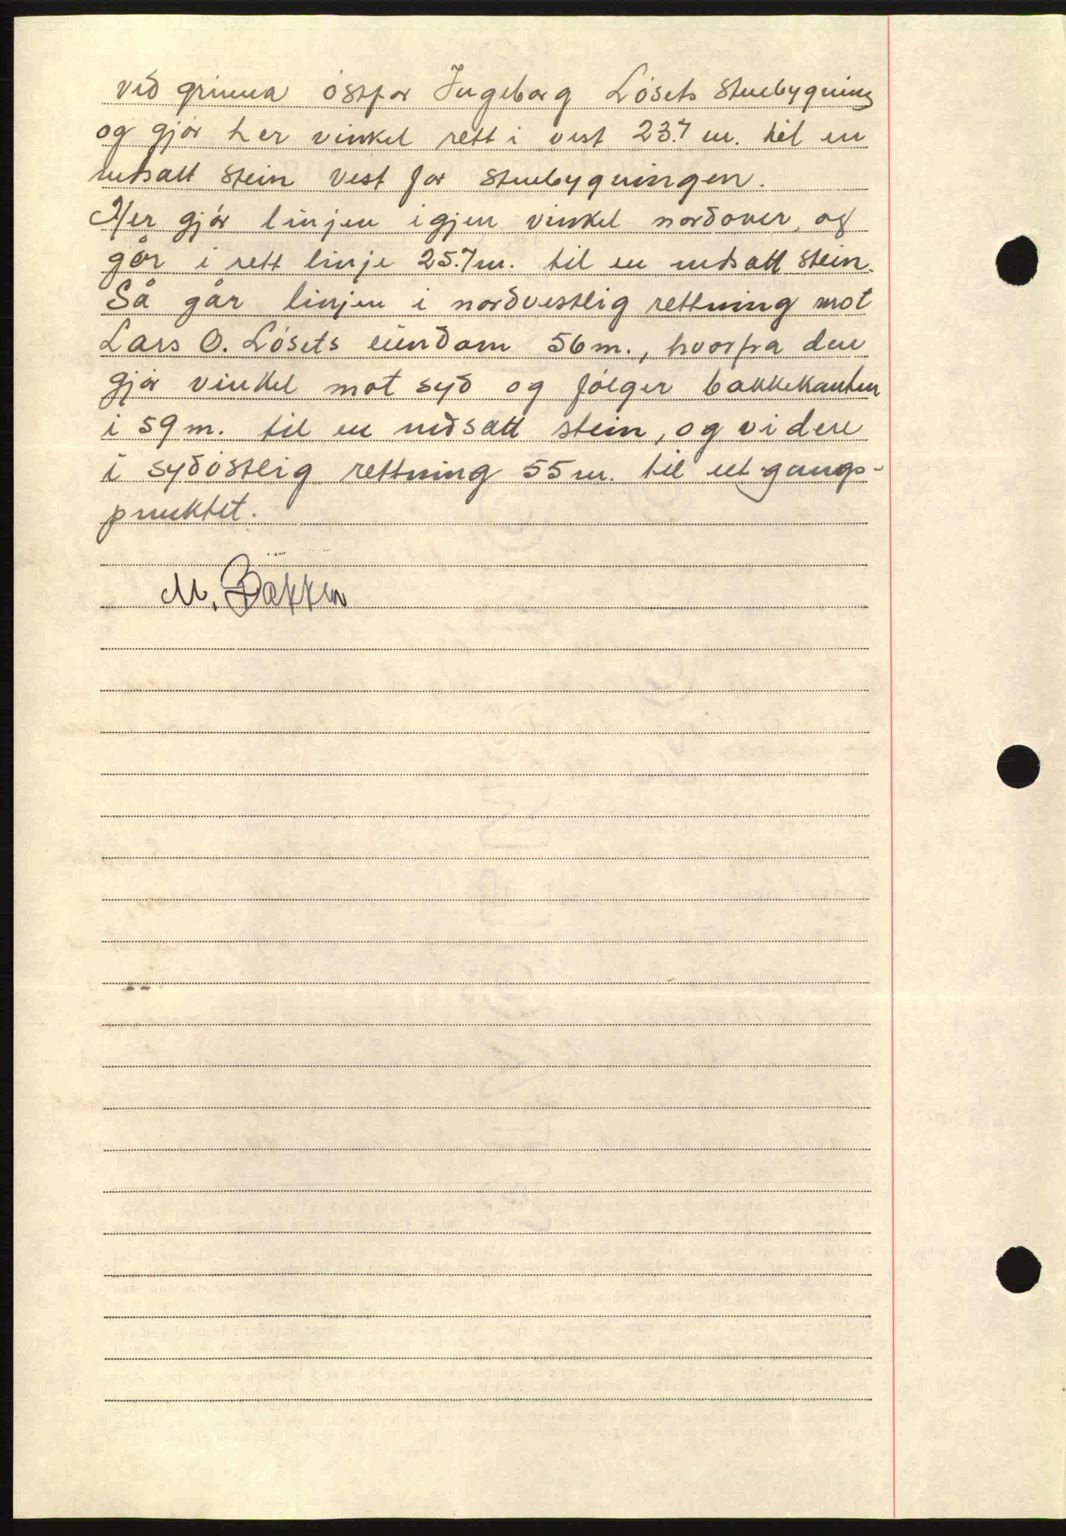 ved grinna östfor Ingeborg Lösets stuebygning
og gjör her vinkel rett i vest 23.7 m. til en
nedsatt stein vest for stuebygningen.
Her gjör linjen igjen vinkel nordover, og
går i rett linje 25.7 m. til en nedsatt stein.
Så går linjen i nordvestlig rettning mot
Lars O. Lösets eiendom 56 m., hvorfra den
gjör vinkel mot syd og fölger bakkekanten
i 59 m. til en nedsatt stein, og videre
i sydöstlig rettning 55 m. til utgangs-
punktet.
M. Bakken